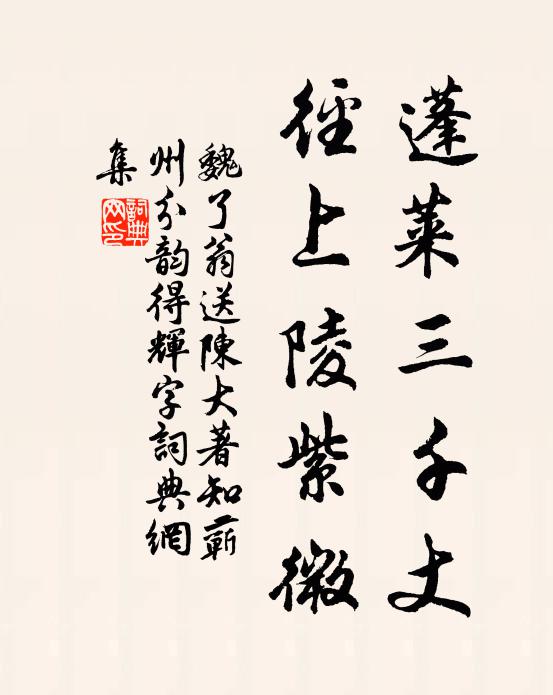 蓬萊三千丈
徑上陵紫微
魏了翁送陳大著知蘄
州分韵得輝字詞典網
集
詞典網印